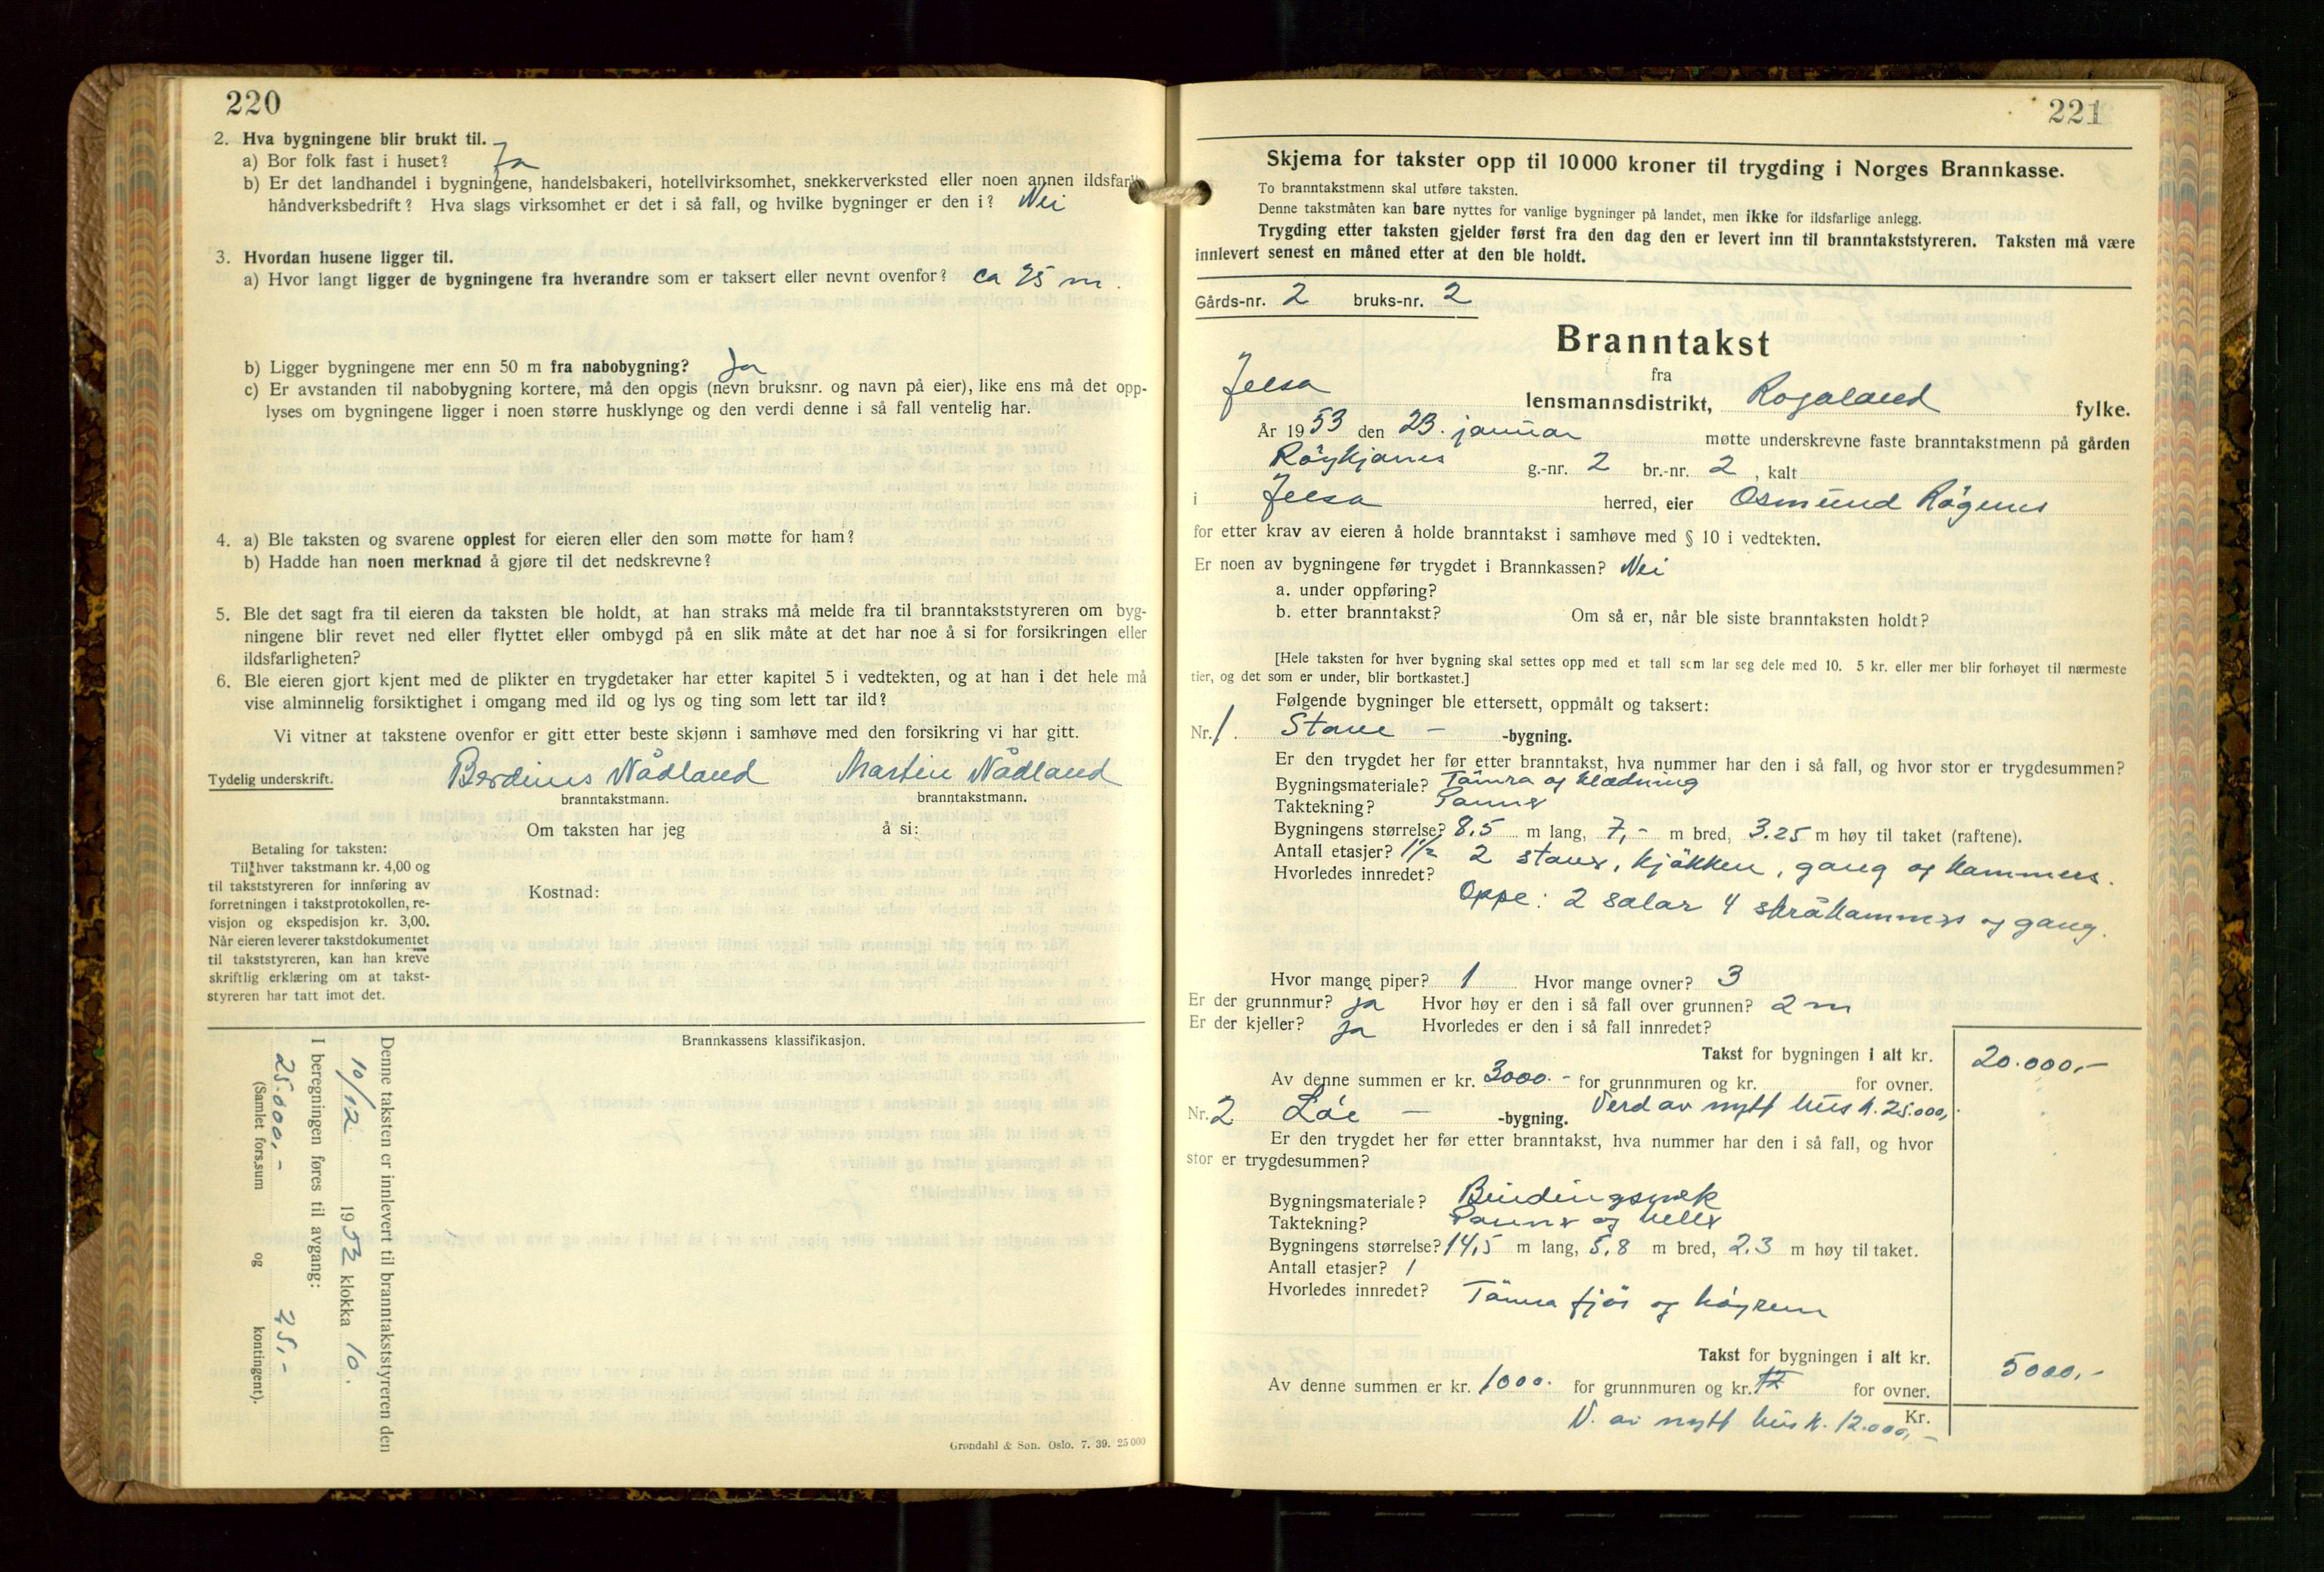 220
2. Hva bygningene blir brukt til.
a) Bor folk fast i huset? Ja
b) Er det landhandel i bygningene, handelsbakeri, hotellvirksomhet, snekkerverksted eller noen annen ildsfarlig
håndverksbedrift? Hva slags virksomhet er det i så fall, og hvilke bygninger er den i? Nei
3. Hvordan husene ligger til.
a) Hvor langt ligger de bygningene fra hverandre som er taksert eller nevnt ovenfor? ca 25 m.
b) Ligger bygningene mer enn 50 m fra nabobygning? Ja
c) Er avstanden til nabobygning kortere, må den opgis (nevn bruksnr. og navn på eier), like ens må det opp-
lyses om bygningene ligger i noen større husklynge og den verdi denne i så fall ventelig har.
4. a) Ble taksten og svarene opplest for eieren eller den som møtte for ham?
b) Hadde han noen merknad å gjøre til det nedskrevne?
5. Ble det sagt fra til eieren da taksten ble holdt, at han straks må melde fra til branntakststyreren om byg-
ningene blir revet ned eller flyttet eller ombygd på en slik måte at det har noe å si for forsikringen eller
ildsfarligheten?
6. Ble eieren gjort kjent med de plikter en trygdetaker har etter kapitel 5 i vedtekten, og at han i det hele må
vise alminnelig forsiktighet i omgang med ild og lys og ting som lett tar ild?
Vi vitner at takstene ovenfor er gitt etter beste skjønn i samhøve med den forsikring vi har gitt.
Tydelig underskrift. Berdines Nådland Martin Nådland
branntakstmann. branntakstmann.
Om taksten har jeg å si:
Betaling for taksten:
Til hver takstmann kr. 4,00 og
til takststyreren for innføring av
forretningen i takstprotokollen, re-
visjon og ekspedisjon kr. 3,00.
Når eieren leverer takstdokumentet
til takststyreren, kan han kreve
skriftlig erklæring om at takst-
styreren har tatt imot det.
Kostnad:
Brannkassens klassifikasjon.
Denne taksten er innlevert til branntakststyreren den
10/12 1953 klokka 10.
I beregningen føres til avgang:
25.000,- 25,-
(Samlet fors.sum og kontingent).
Grøndahl & Søn. Oslo. 7. 39. 25 000
221
Skjema for takster opp til 10 000 kroner til trygding i Norges Brannkasse.
To branntakstmenn skal utføre taksten.
Denne takstmåten kan bare nyttes for vanlige bygninger på landet, men ikke for ildsfarlige anlegg.
Trygding etter taksten gjelder først fra den dag den er levert inn til branntakststyreren. Taksten må være
innlevert senest en måned etter at den ble holdt.
Gårds-nr. 2 bruks-nr. 2
Branntakst
fra
Jelsa lensmannsdistrikt, Rogaland fylke.
År 1953 den 23. januar møtte underskrevne faste branntakstmenn på gården
Röykjanes g.-nr. 2 br.-nr. 2, kalt
i Jelsa herred, eier Osmund
for etter krav av eieren å holde branntakst i samhøve med § 10 i vedtekten.
Er noen av bygningene før trygdet i Brannkassen? Nei
a. under oppføring?
b. etter branntakst? Om så er, når ble siste branntaksten holdt?
[Hele taksten for hver bygning skal settes opp med et tall som lar seg dele med 10. 5 kr. eller mer blir forhøyet til nærmeste
tier, og det som er under, blir bortkastet.]
Følgende bygninger ble ettersett, oppmålt og taksert:
Nr. 1. Stove - -bygning.
Er den trygdet her før etter branntakst, hva nummer har den i så fall, og hvor stor er trygdesummen?
Bygningsmateriale? Tömra og klædning
Taktekning? Panner
Bygningens størrelse? 8,5 m lang, 7,- m bred, 3.25 m høy til taket (raftene).
Antall etasjer? 1 1/2
Hvorledes innredet? 2 stover, kjökken, gang og kammers.
Oppe: 2 salar 4 skråkammers og gang.
Hvor mange piper? 1 Hvor mange ovner? 3
Er der grunnmur? ja Hvor høy er den i så fall over grunnen? 2 m
Er der kjeller? ja Hvorledes er den i så fall innredet?
Takst for bygningen i alt kr. 20.000,-
Av denne summen er kr. 3000.- for grunnmuren og kr. for ovner.
Verd av nytt hus k. 25.000,-
Nr. 2 Löe - -bygning.
Er den trygdet her før etter branntakst, hva nummer har den i så fall, og hvor
stor er trygdesummen?
Bygningsmateriale? Bindingsverk
Taktekning? Panner og heller
Bygningens størrelse? 14,5 m lang, 5,8 m bred, 2.3 m høy til taket.
Antall etasjer? 1
Hvorledes innredet? Tömra fjös og höyrum
Takst for bygningen i alt kr. 5000,-
Av denne summen er kr. 1000. for grunnmuren og kr. for ovner.
Kr.
V. av nytt hus k. 12.000,-